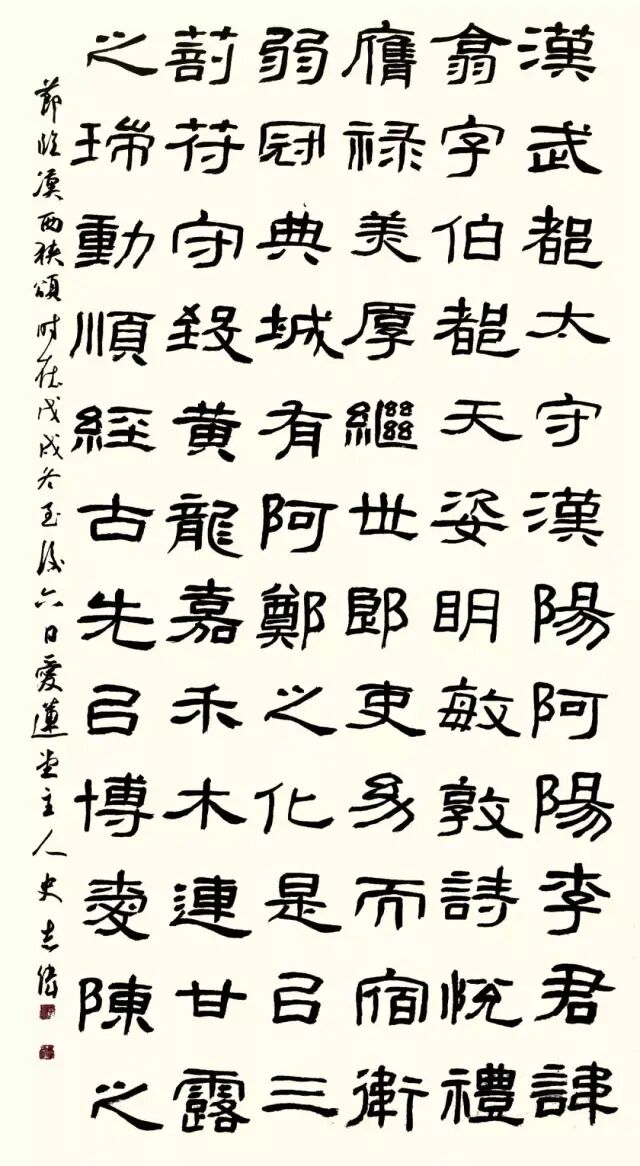 漢武都太守漢陽阿陽李君諱
翕字伯都天姿明敏敦詩悅禮
膺禄美厚繼世郎吏幼而宿衛
弱冠典城有阿鄭之化是㠯三
剖苻守致黄龍嘉禾木連甘露
之瑞動順經古先㠯博愛陳之
節臨漢西狹頌时在戊戌冬至後六日愛蓮堂主人史志偉